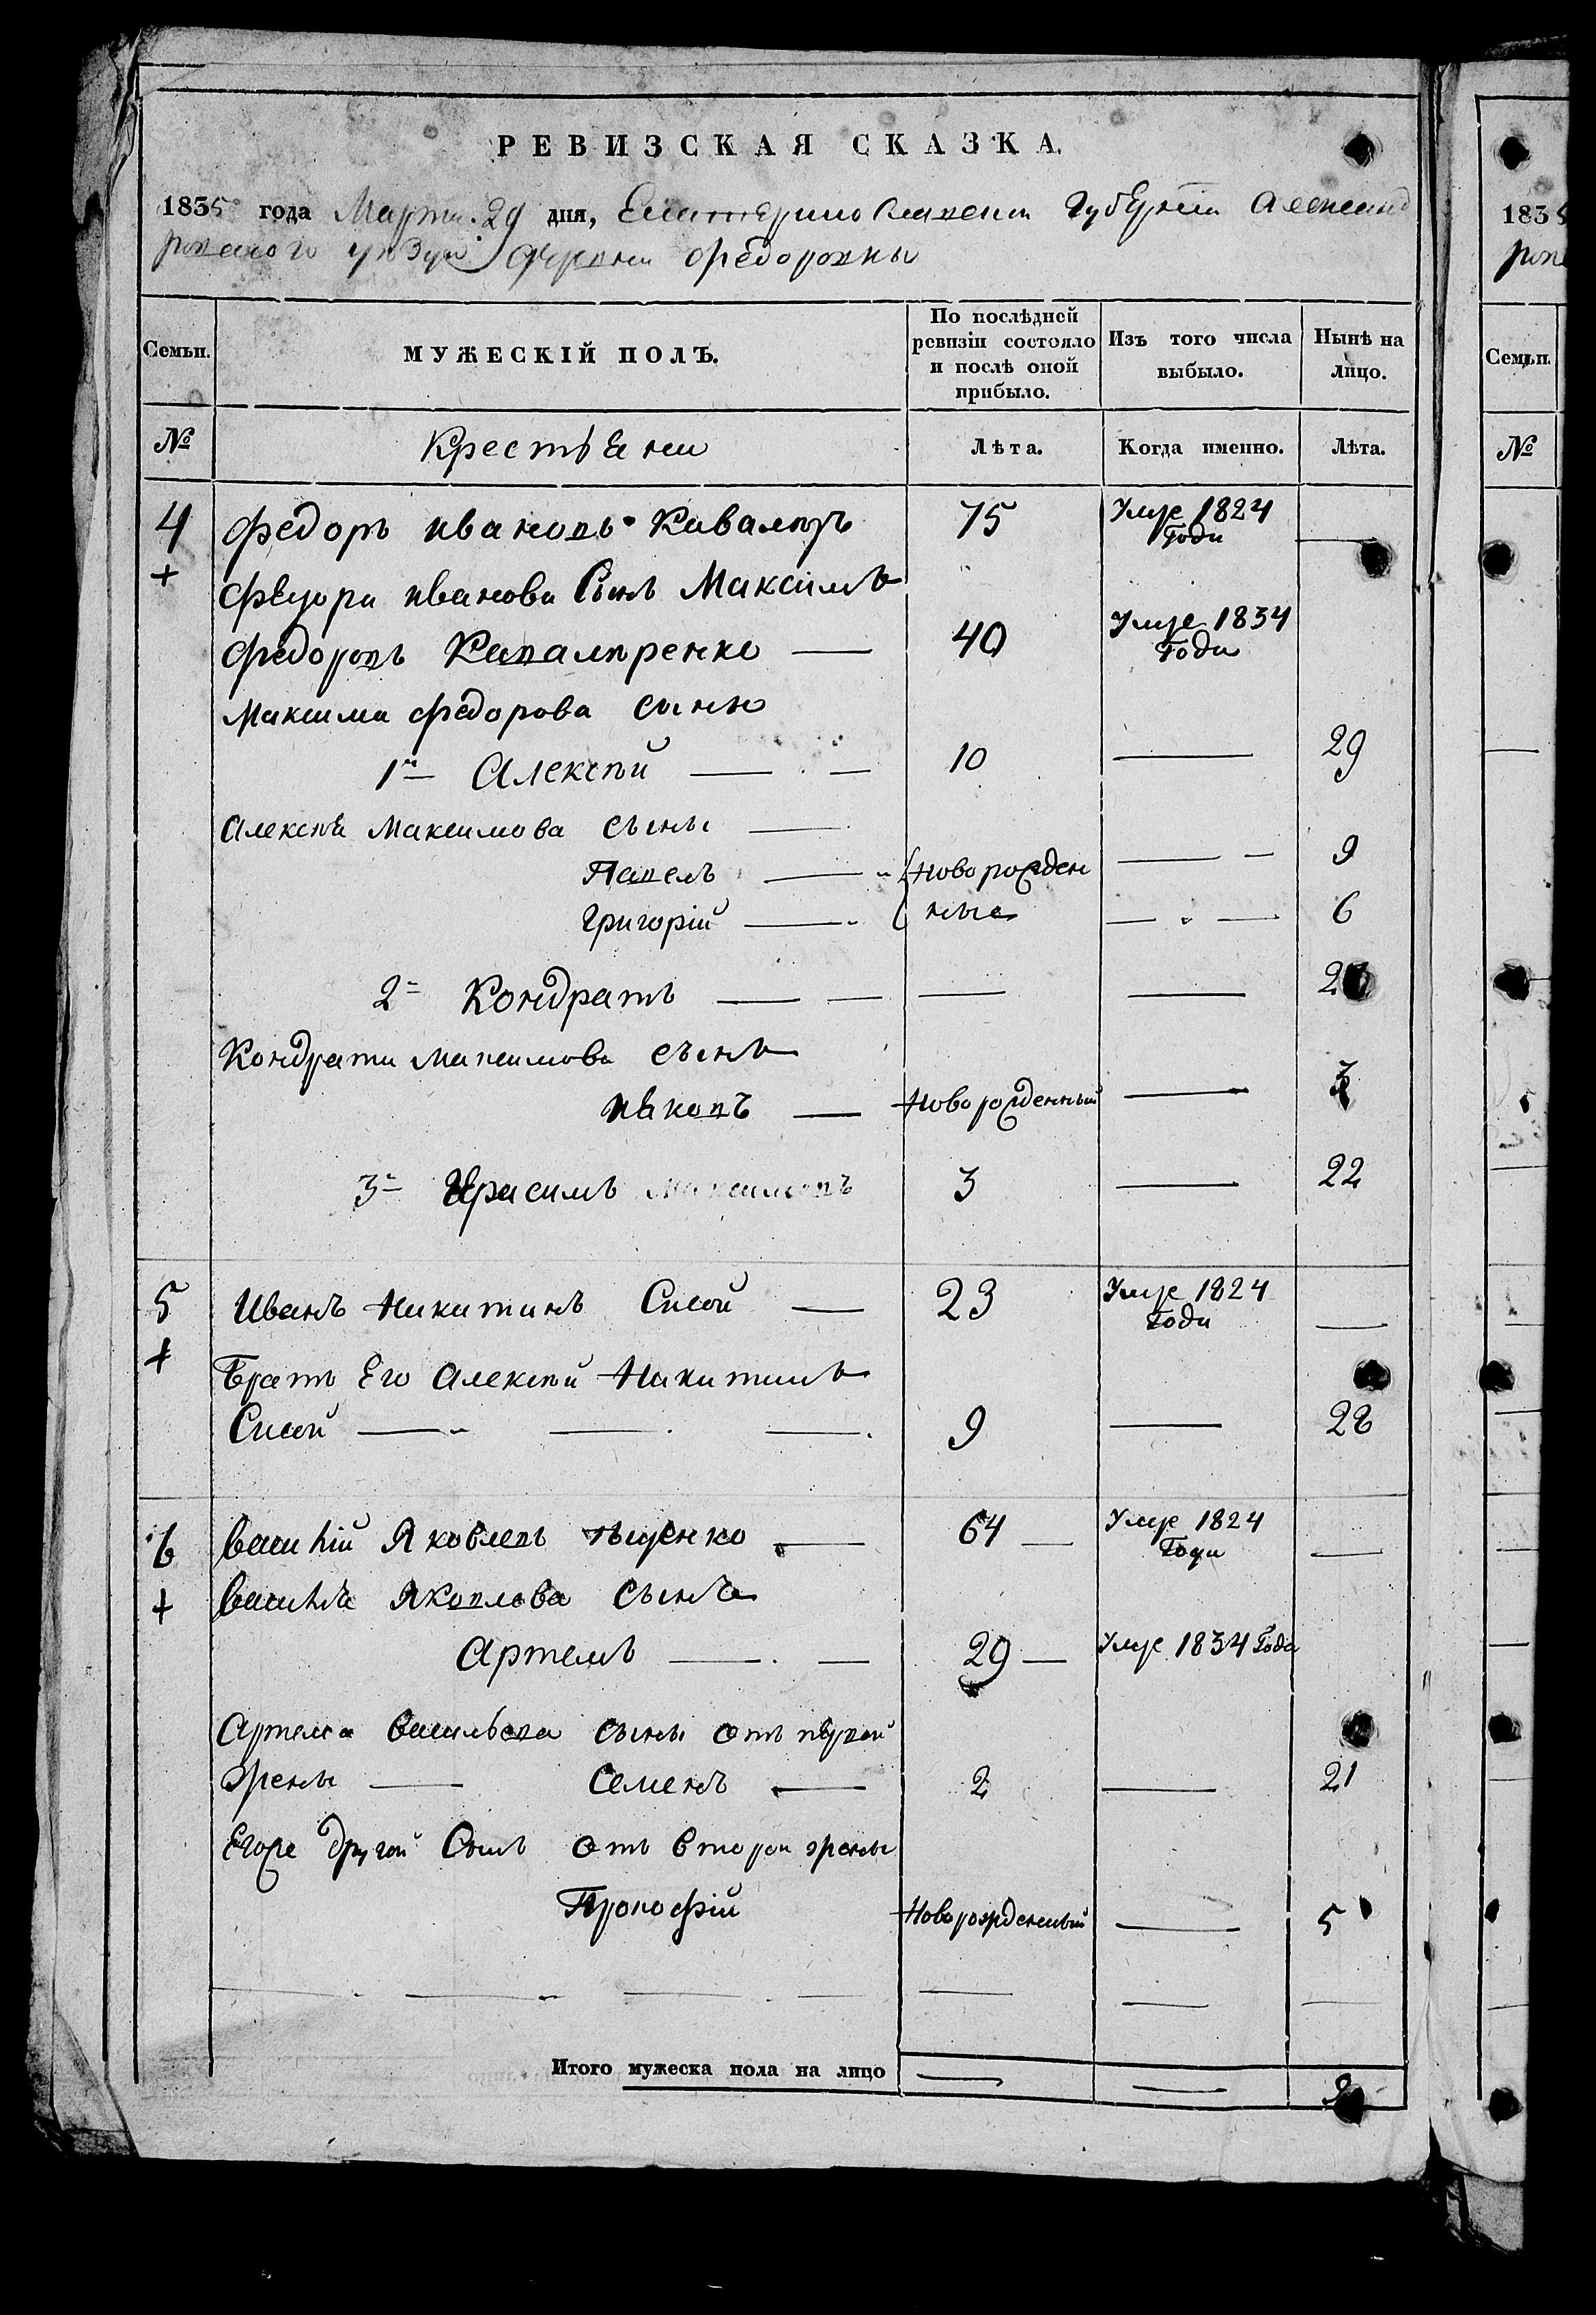 РЕВИЗСКАЯ СКАЗКА.
1835 года Марта 29 дня, Екатеринославской Губернии Александ
ровского уѣзда деревни Федоровки
Семьи. МУЖЕСКІЙ ПОЛЪ. По послѣдней ревизіи состояло и послѣ оной прибыло. Изъ того числа выбыло. Нынѣ на лицо.
№ Крестьяни Лѣта. Когда именно. Лѣта.
4 Федоръ Ивановъ 75 Умре 1824 Года —
+ Федора Иванова Сынъ Максимъ
Федоровъ 40 Умре 1834 Года
Максима Федорова сыны
1й Алексѣй — 10 — 29
Алексѣя Максимова сыны —
Павелъ — Новорожден — 9
Григорій — ные — 6
2й Кондратъ — — —
Кондрата Максимова сынъ
Яковъ — Новорожденный — 3
3й Герасимъ Максимовъ 3 — 22
5 Иванъ Никитинъ — 23 Умре 1824 Года —
+ Братъ Его Алексѣй Никитинъ
— 9 — 28
6 Василій Яковлевъ — 64 — Умре 1824 Года —
+ Василія Яковлева сынъ
Артемъ — 29 — Умре 1834 Года
Артема Васильева сыны отъ первой
жены — Семенъ — 2 — 21
Егоже другой Сынъ отъ второй жены
Прокофій Новорожденный — 5
Итого мужеска пола на лицо — — 9
1835
ров
Семьи.
№